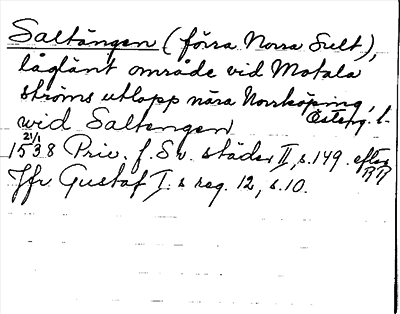 Saltängen (förra Norra Sult),
låglänt område vid Motala
ströms utlopp nära Norrköping,
Österg. l.
vid Saltengen
21/1
1538 Priv. f. Sv. städer II, s. 149. efter
RR
Jfr Gustaf I:s reg. 12, s. 10.